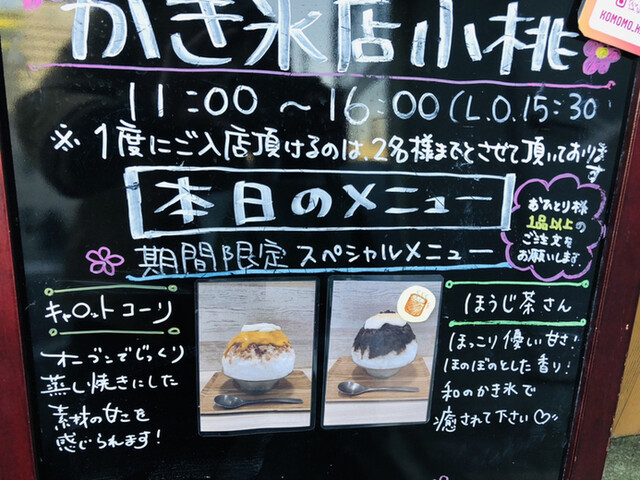 かき氷店小桃
KOMOMO_K
11:00～16:00(L.O.15:30
※1度にご入店頂けるのは、2名様までとさせて頂いております
本日のメニュー
おひとり様
1品以上の
ご注文を
お願いします。
期間限定 スペシャルメニュー
キャロットコーリ
オーブンでじっくり
蒸し焼きにした
素材の甘さを
感じられます!
ほうじ茶さん
ほっこり優しい甘さ!
ほのぼのとした香り!
和のかき氷で
癒されて下さい♡